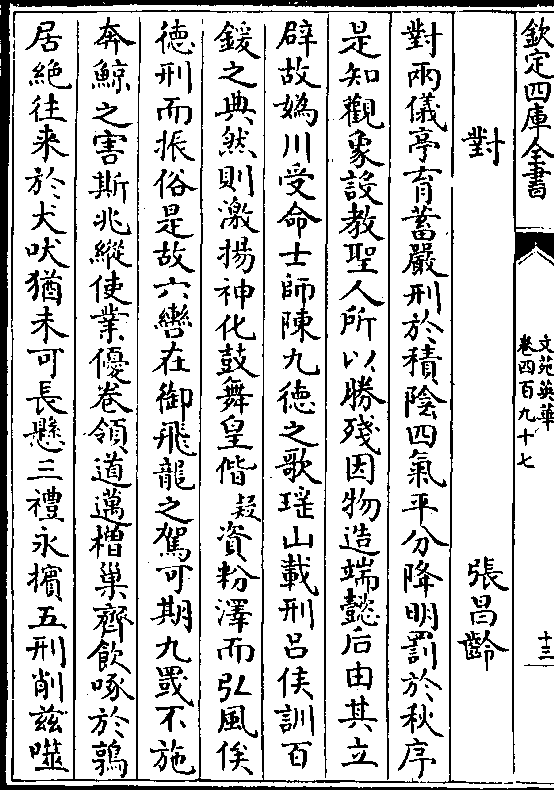 欽定四庫全書
文苑英華
卷四百九十七
十三
對
張昌齡
對兩儀亭育蓄嚴刑於積陰四氣平分降明罰於秋序
是知觀象設教聖人所以勝殘因物造端懿后由其立
辟故媯川受命士師陳九德之歌瑶山載刑吕侯訓百
鍰之典然則激揚神化鼓舞皇偕疑資粉澤而弘風俟
德刑而振俗是故六轡在御飛龍之駕可期九罭不施
奔鯨之害斯兆縱使業優卷領道邁橧巢齊飲啄於鶉
居絶往來於犬吠猶未可長懸三禮永擯五刑削兹噬